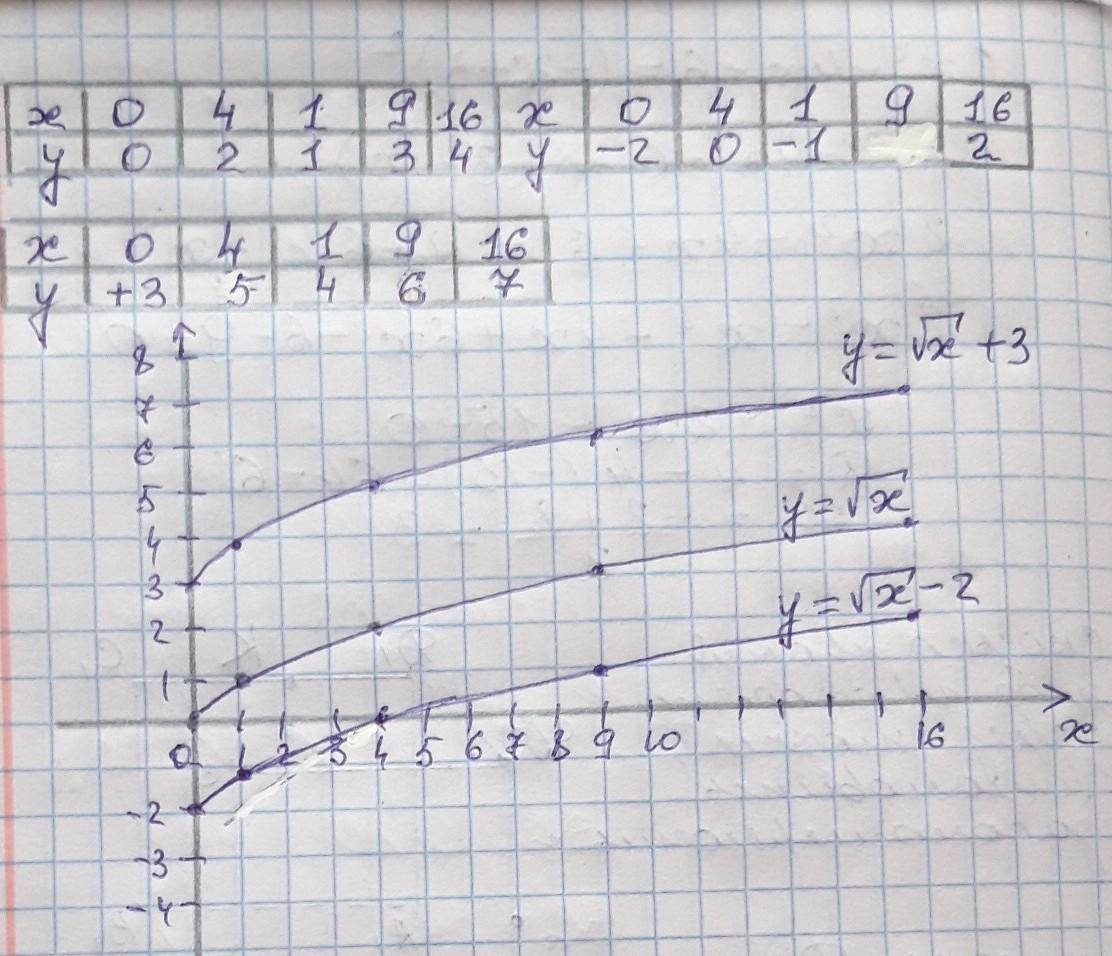 x 0 4 1 9 16 x 0 4 1 9 16
y 0 2 1 3 4 y -2 0 -1 2
x 0 4 1 9 16
y +3 5 4 6 7
8
y = √x + 3
7
6
5
y = √x
4
3
y = √x - 2
2
1
0 1 2 3 4 5 6 7 8 9 10 16 x
-2
-3
-4